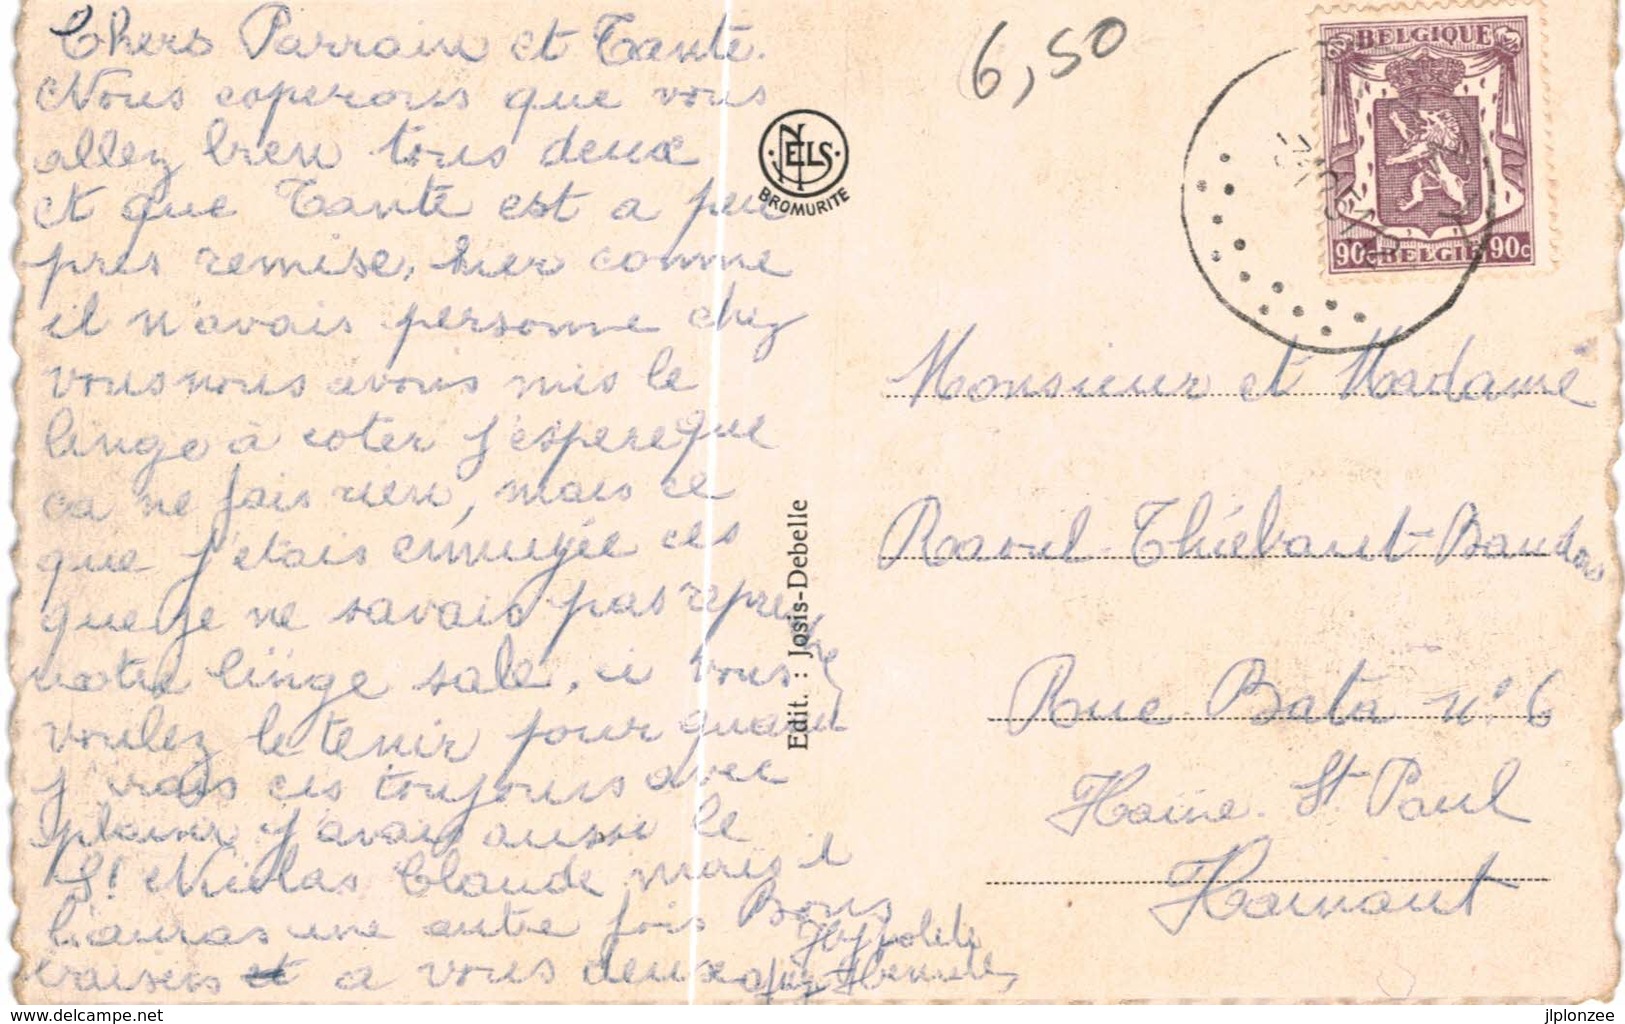 Chers Parrain et Tante.
Nous esperons que vous
allez bien tous deux
et que Tante est a peu
pres remise, hier comme
il n'avais personne chez
vous nous avons mis le
linge à coter j'espere que
ca ne fais rien, mais ce
que j'etais ennuyée ces
que je ne savais pas reprendre
votre linge sale, si vous
voulez le tenir pour quand
j'irais ces toujours avec
plaisir j'avais aussi le
St Nicolas Claude mais il
l'auras une autre fois Bons
baisers et a vous deux
Hyppolite
NELS
BROMURITE
Edit. : Josis-Debelle
6,50
BELGIQUE
90c BELGIE 90c
Monsieur et Madame
Raoul-Thiébaut-Baudois
Rue Bata n° 6
Haine-St Paul
Hainaut
© www.delcampe.net
jlplonzee